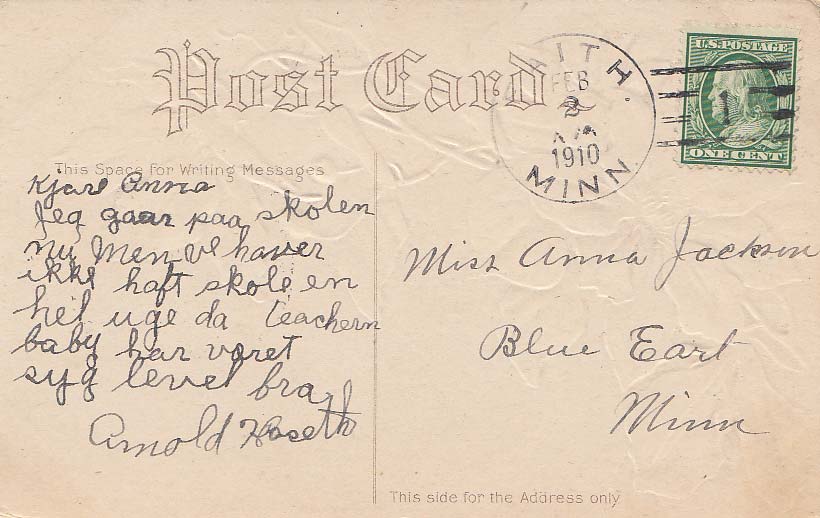 Post Card
AITH.
FEB
2
1910
MINN.
U.S. POSTAGE
1
ONE CENT
This Space for Writing Messages
Kjare Anna
Jeg gaar paa skolen
nu Men ve haver
ikke haft skole en
hel uge da teachern
baby har varet
syg level bra
Arnold Haseth
Miss Anna Jackson
Blue Eart
Minn
This side for the Address only